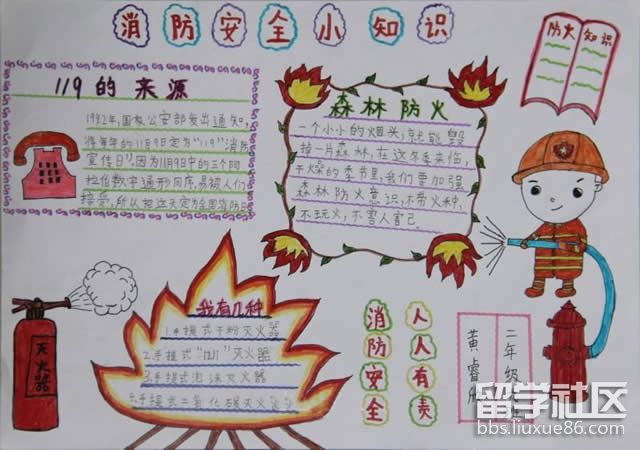 消防安全小知识
防火知识
119的来源
1982年,国家公安部发出通知,
将每年的11月9日定为"119"消防
宣传日",因为11月9日中的三个阿
拉伯数字通形同序,易被人们
接受,所以把这天定为全国消防日
森林防火
一个小小的烟头,就能毁
掉一片森林,在这冬季来临,
干燥的季节里,我们要加强
森林防火意识,不带火种、
不玩火,不害人害己.
灭火器
我有几种
1.手提式干粉灭火器
2.手提式"1211"灭火器
3.手提式泡沫灭火器
4.手提式二氧化碳灭火器
消防安全
人人有责
二年级
黄睿
留学社区
bbs.liuxue86.com